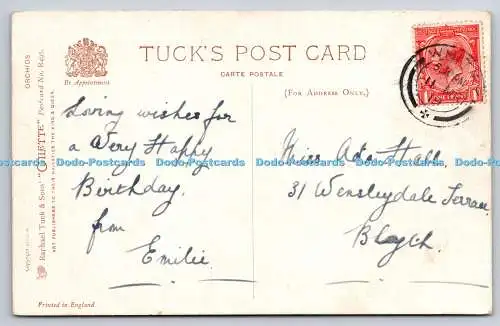 TUCK'S POST CARD
CARTE POSTALE
By Appointment
(FOR ADDRESS ONLY.)
Loving wishes for
a Very Happy
Birthday.
from
Emilie.
Miss Ada Hall,
31 Wensleydale Terrace
Blyth.
ORCHIDS
Raphael Tuck & Sons' "GILLETTE" Postcard No.
ART PUBLISHERS TO THEIR MAJESTIES THE KING & QUEEN.
Printed in England.
Dodo-Postcards Dodo-Postcards Dodo-Postcards Dodo-Postcards Dodo-Postcards